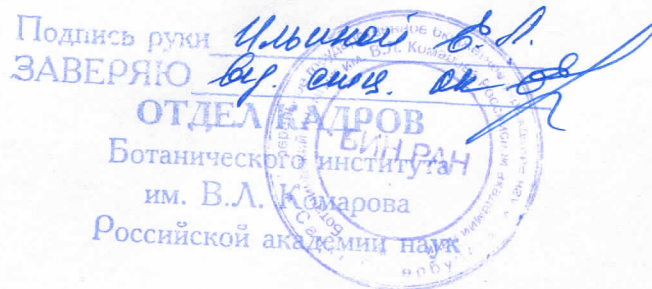 Подпись руки Ильиной Е.Л.
ЗАВЕРЯЮ вед. спец. ок
ОТДЕЛ КАДРОВ
Ботанического института
им. В.Л. Комарова
Российской академии наук
БИН РАН
им. В.Л. Комарова